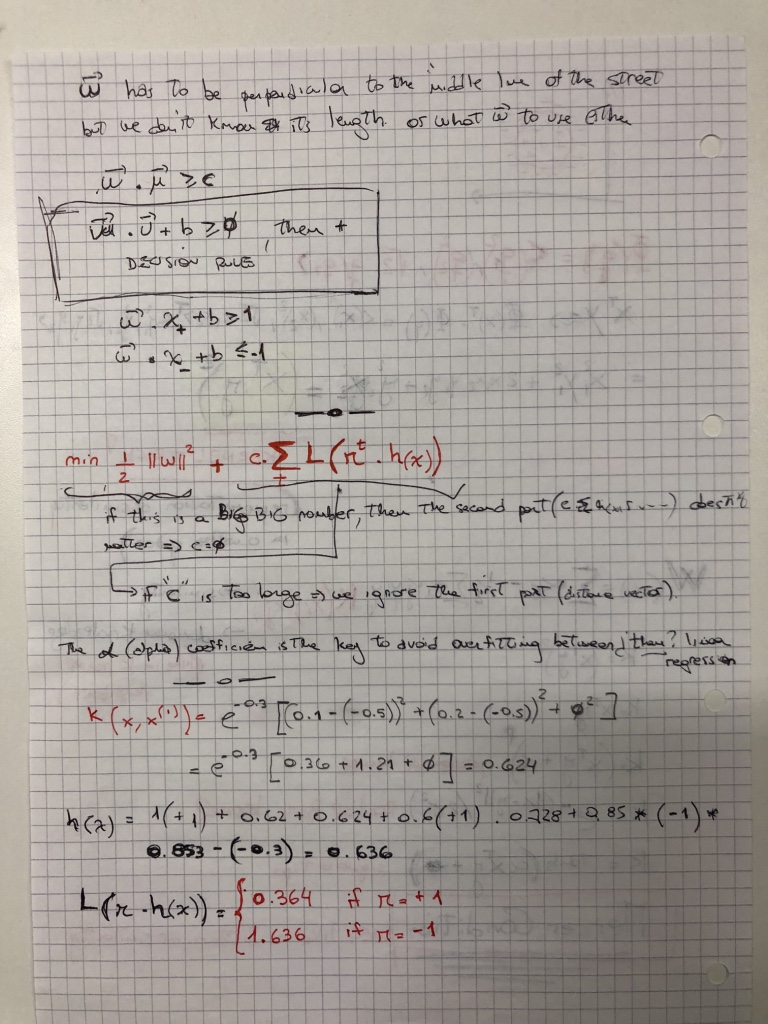 w⃗ has to be perpendicular to the middle line of the street
but we don't know its length or what w⃗ to use either
w⃗ . μ⃗ ≥ c
. u⃗ + b ≥ ∅, then +
DECISION RULES
w⃗ . x₊ + b ≥ 1
w⃗ . x₋ + b ≤ -1
min 1/2 ||w||² + c. Σ L(rᵗ . h(x))
if this is a BIG BIG number, then the second part (c Σ ...) doesn't
matter => c=∅
→ if "C" is too large => we ignore the first part (distance vector).
The α (alpha) coefficien is the key to avoid overfitting between them? linear
regression
K(x, x⁽¹⁾) = e^-0.3 [(0.1-(-0.5))² + (0.2-(-0.5))² + ∅²]
= e^-0.3 [0.36 + 1.21 + ∅] = 0.624
h(x) = 1(+1) + 0.62 + 0.624 + 0.6(+1) . 0.728 + 0.85 * (-1) *
0.853 - (-0.3) = 0.636
L(r . h(x)) = { 0.364 if r = +1
1.636 if r = -1